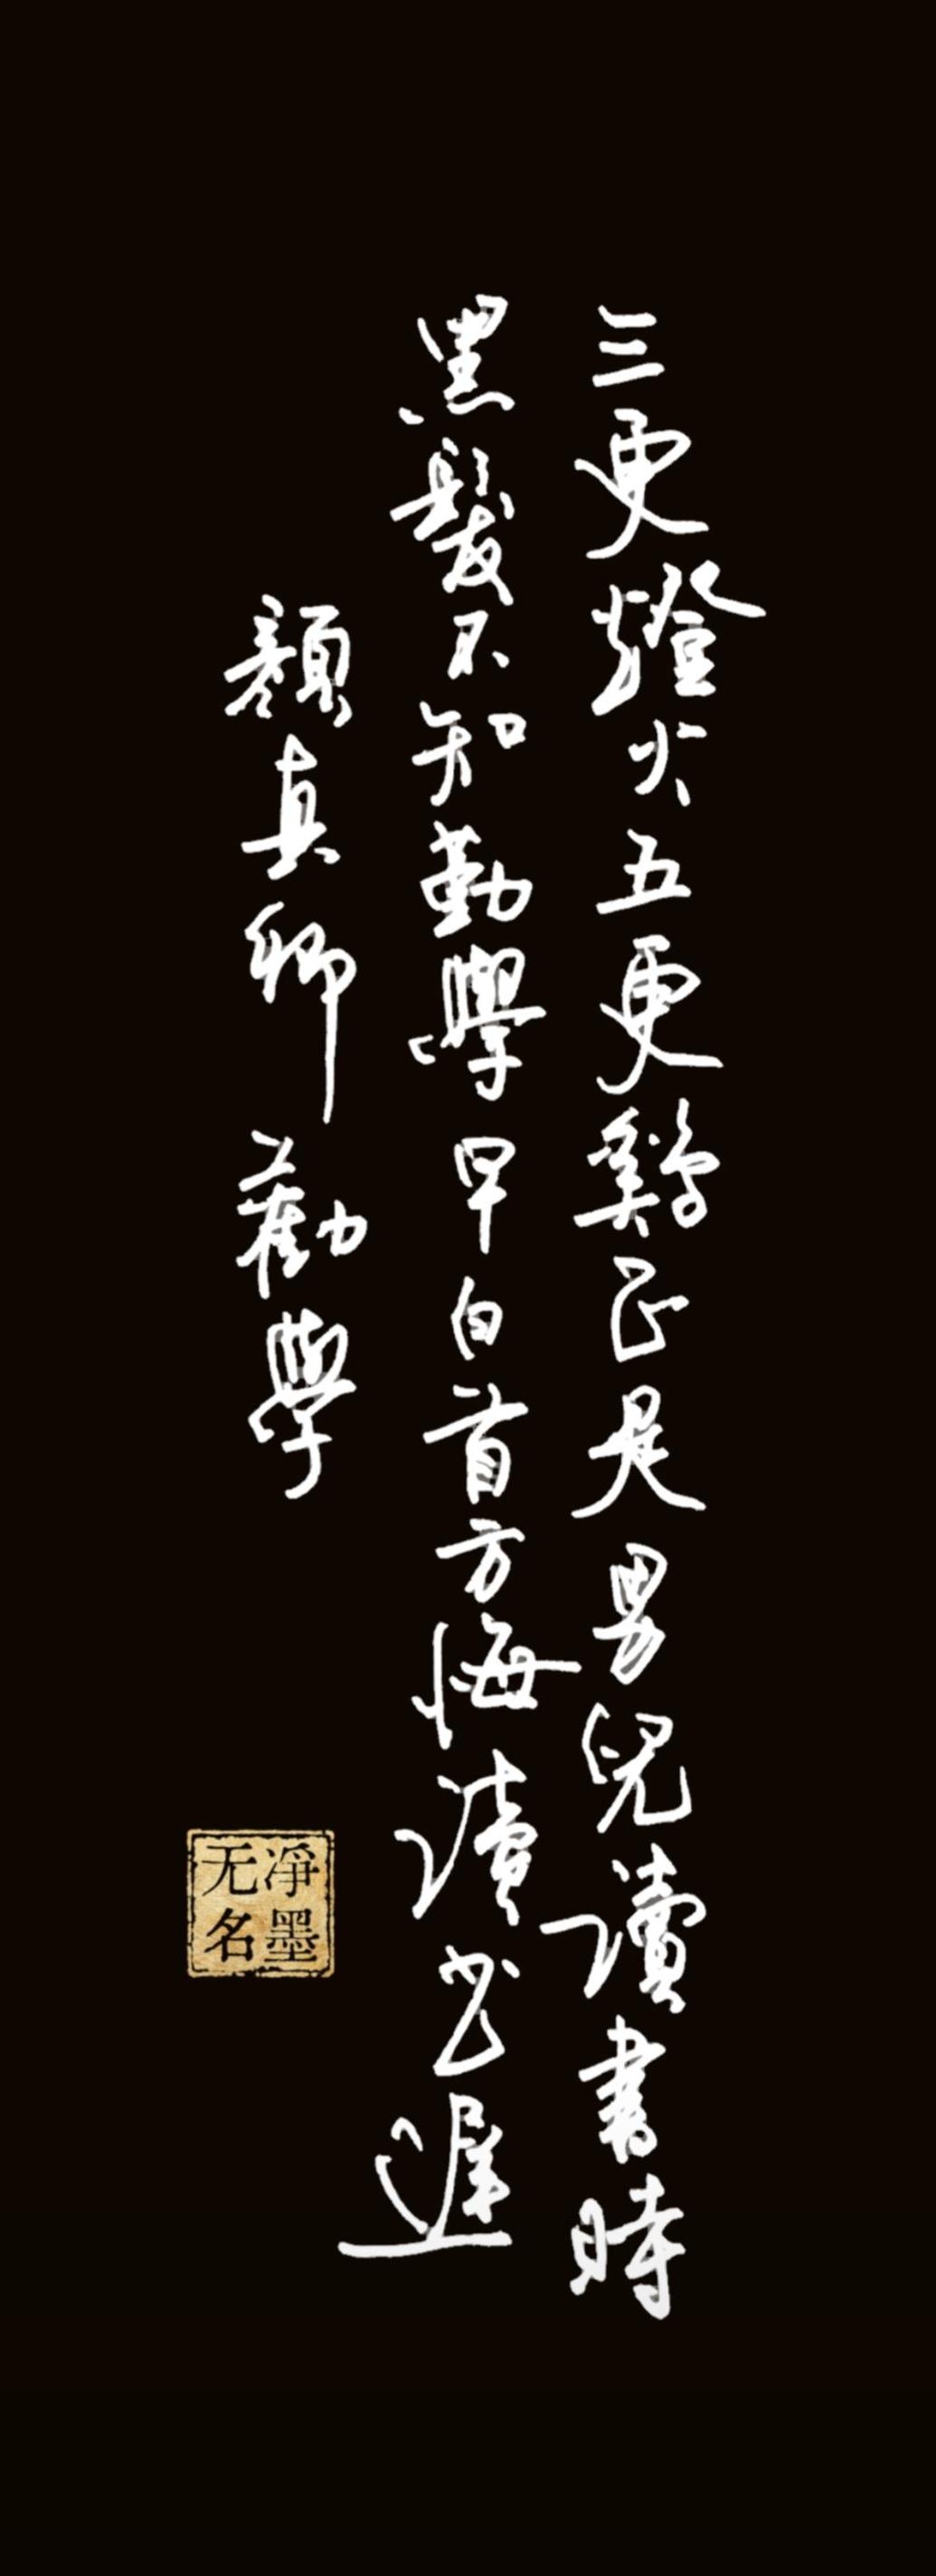 三更燈火五更鷄正是男兒讀書時
黑髮不知勤學早白首方悔讀书遲
顏真卿勸學
凈墨
无名